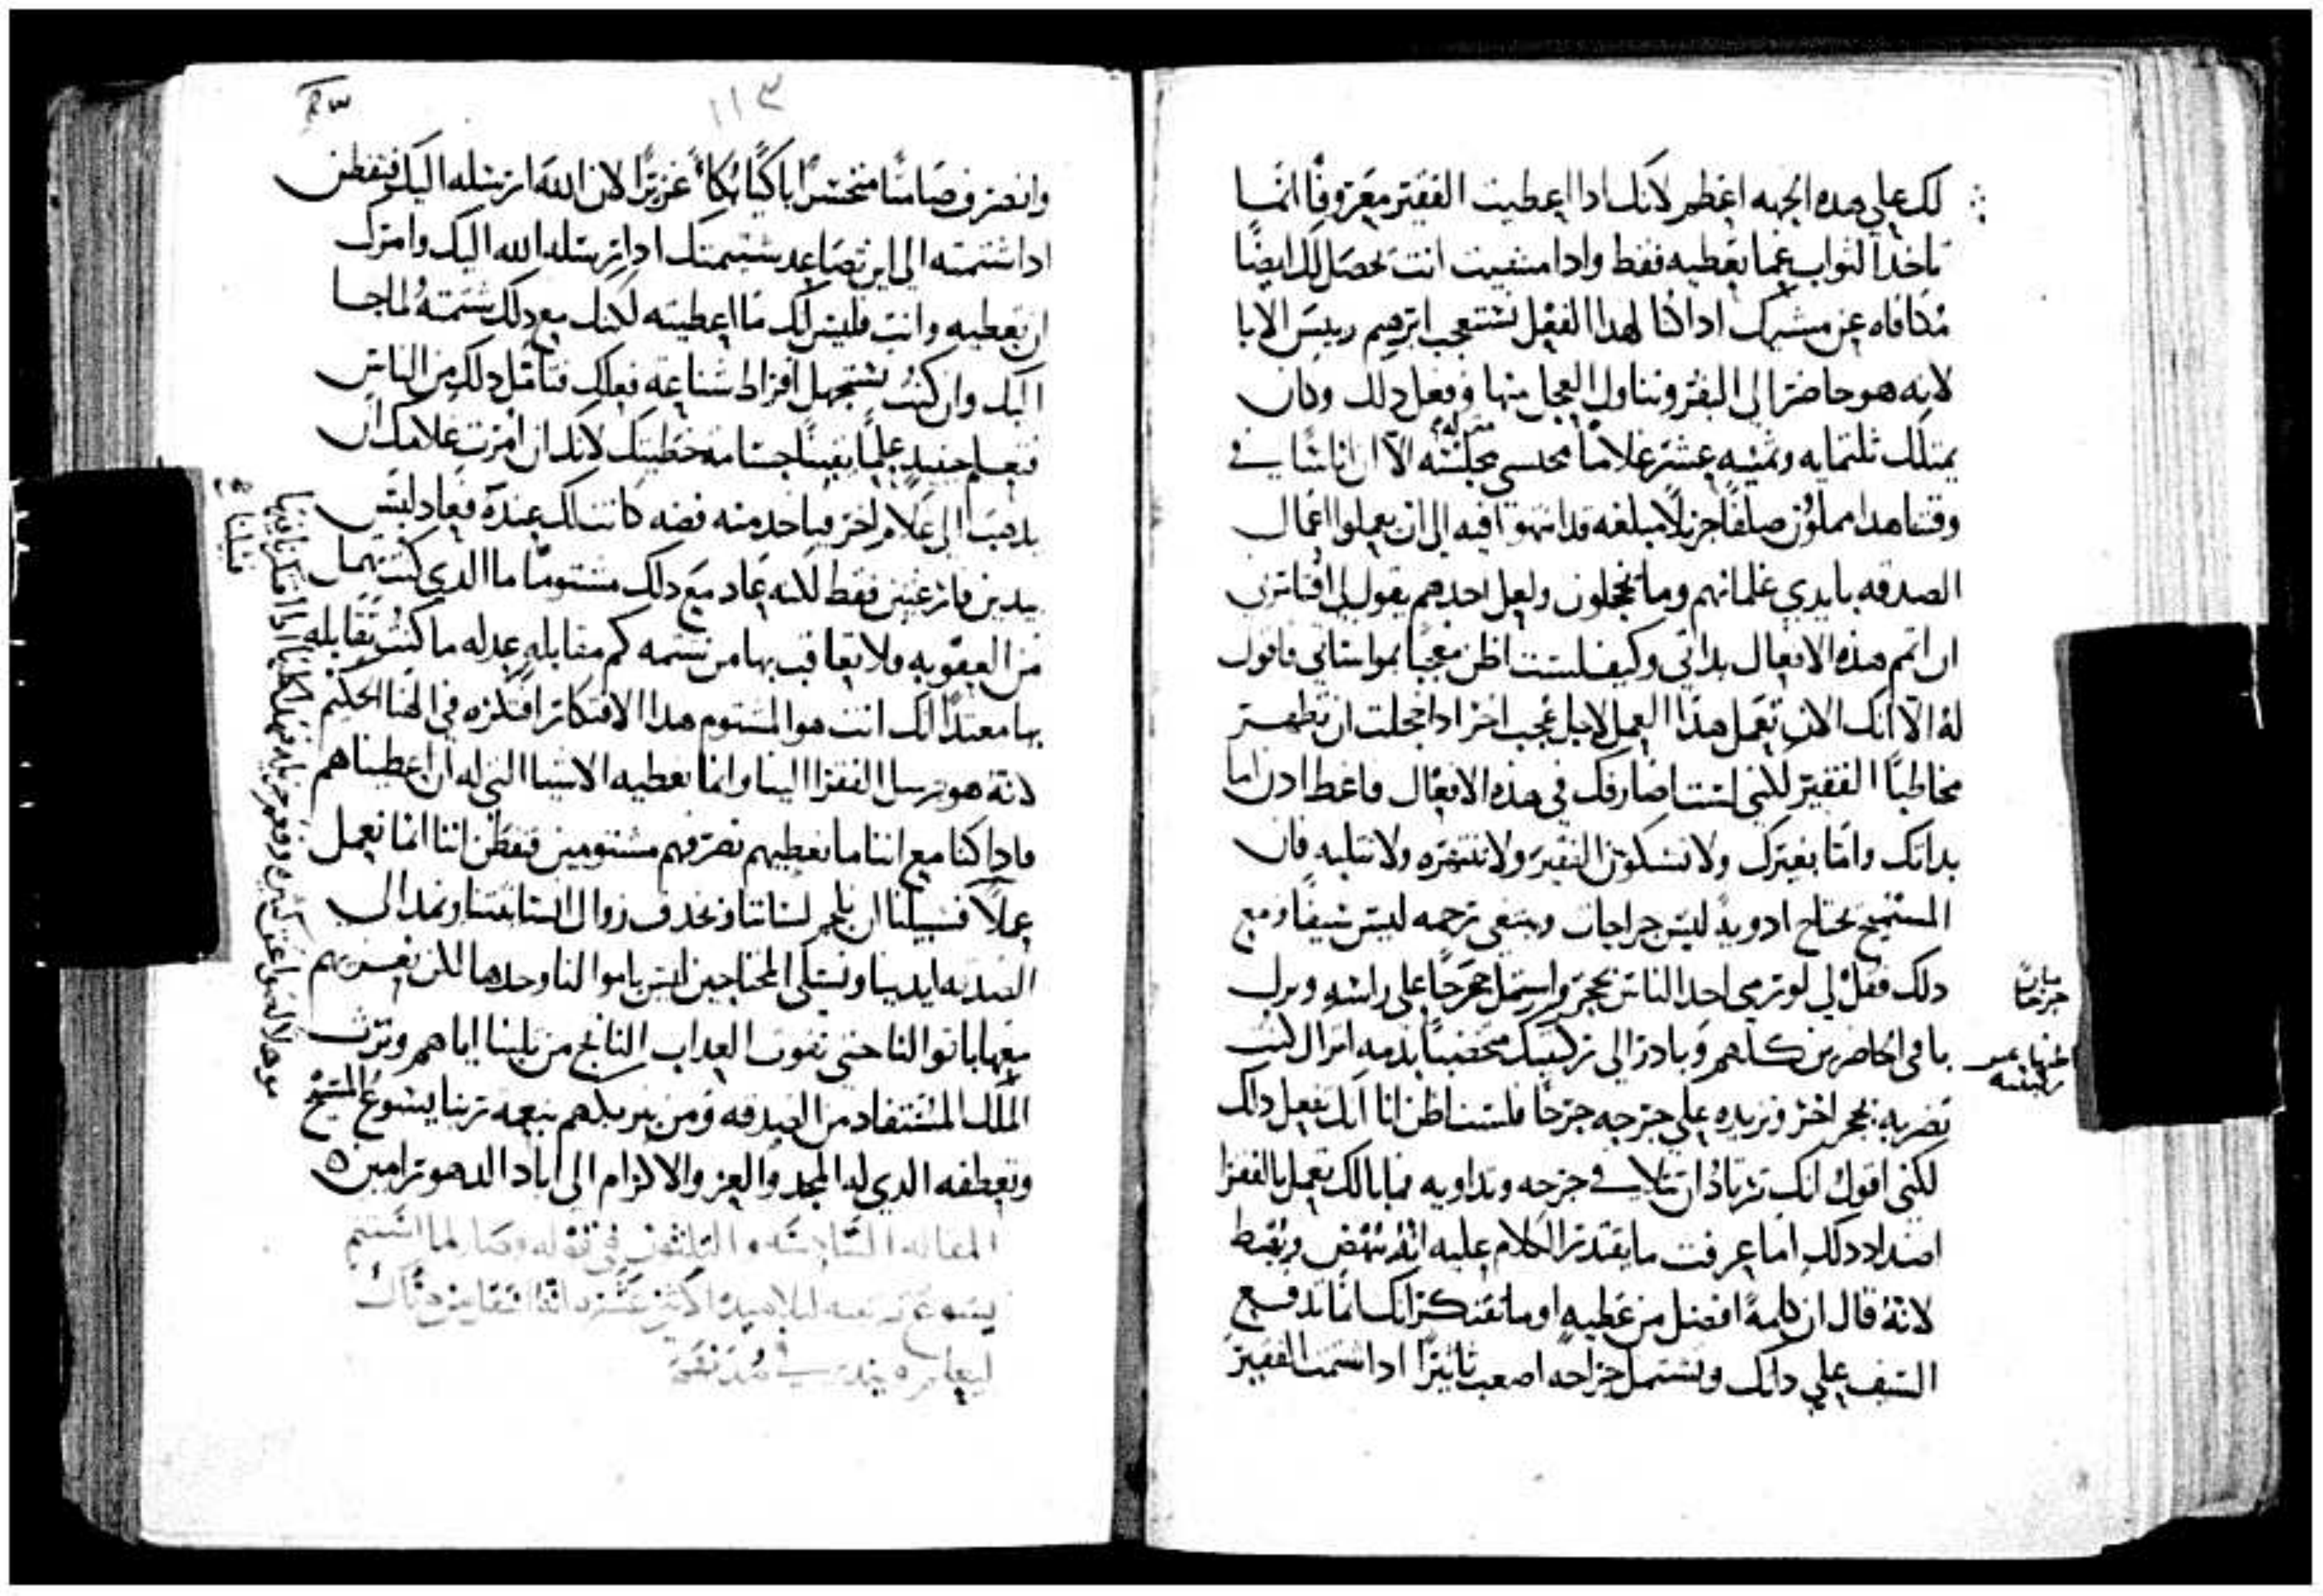 لك علي هده الجهه اعظم لانك ادا اعطيت الفقير معروفًا انما
تاخد الثواب عما تعطيه فقط وادا مشيت انت يحصل لك ايضًا
مكافاه عن مشيك ادا كنا لهدا الفعل نستعجب ابرهيم رييس الابا
لانه هو حاضر الي البقر وتناول العجل منها وفعل دلك وكان
يمتلك ثلثمايه وثمنيه عشر غلامًا الا ان اناسًا في
وقتنا هدا مملوون صلفًا جزيلًا مبلغه قد انتهوا فيه الي ان يعملوا اعمال
الصدقه بايدي غلمانهم وما يخجلون ولعل احدهم يقول لي افتامرني
ان اتمم هده الافعال بداتي وكيف لست اظن معجبًا بمواساتي فاقول
له الا انك الان تعمل هدا العمل لاجل عجب اخر ادا خجلت ان تظهر
مخاطبًا الفقير لكنني لست اضارفك في هده الافعال فاعط ادن اما
بداتك واما بغيرك ولا تشكون الفقير ولا تنتهره ولا تثلبه فان
المستميح يحتاج ادويه ليس جراحات ويبتغي ترحمه ليس سيفًا ومع
دلك فقل لي لو رمي احد الناس بحجر واستمل جرحًا علي راسه وترك
باقي الحاضرين كلهم وبادر الي ركبتيك مخضبًا بدمه اتراك كنت
تضربه بحجر اخر وتزيده علي جرحه جرحًا فلست اظن انا انك تفعل داك
لكني اقول انك ترتاد ان تلافي جرحه وتداويه فما بالك تعمل بالفقرا
اضداد دلك اما عرفت ما يقتدر الكلام عليه انه ينهض ويقبط
لانه قال ان كلمةً افضل من عطيه او ما تفتكر انك انما تدفع
السيف علي داتك وتستمل جراحه اصعب تاثيرًا ادا شتمت الفقير
جرحًا
ركبتيه
١١٣
وانصرف صامتًا متحسرًا باكيًا بكاءً غزيرًا لان الله ارسله اليك فتفطن
ادا شتمته الي اين تصاعد شتيمتك ادا رسله الله اليك وامرك
ان تعطيه وانت فليس لك ما اعطيته لكنك مع دلك شتمته لما جا
اليك وان كنت تستجهل افراط شناعه فعلك فتامل دلك من الناس
فتعلم حينيد علمًا يقينًا جسامه خطيتك لانك ان امرت غلامك ان
يدهب الي غلام اخر فياخد منه فضه كانت لك عنده فعاد ليس
بيدين فارغتين فقط لكنه عاد مع دلك مشتومًا ما الدي كنت تهمل
من العقوبه ولا تعاقب بها من شتمه كم مقابله عدله ما كنت تقابله
بها معتدًا انك انت هو المشتوم هدا الافتكار افتكره في الهنا الحكيم
لانه هو يرسل الفقرا الينا وانما نعطيه الاشيا التي له ان اعطيناهم
فادا كنا مع اننا ما نعطيهم نصرفهم مشتومين فتفطن اننا انما نعمل
عملًا فسبيلنا ان نلجم لساننا ونحدف زوال ونمد الي
الصدقه ايدينا ونسلي المحتاجين ليس باموالنا وحدها لكن نعزيهم
معها باقوالنا حتي نفوت العداب الناتج من ثلبنا اياهم ونرث
الملك المستفاد من الصدقه ومن تبريكهم بنعمه ربنا يسوع المسيح
وتعطفه الدي له المجد والعز والاكرام الي اباد الدهور امين ٥
المقاله السادسه والثلثون في قوله وصار لما استتم
يسوع توصيته لتلاميده الاثني عشر انه انتقل من هناك
ليعلم وينادي في مدنهم